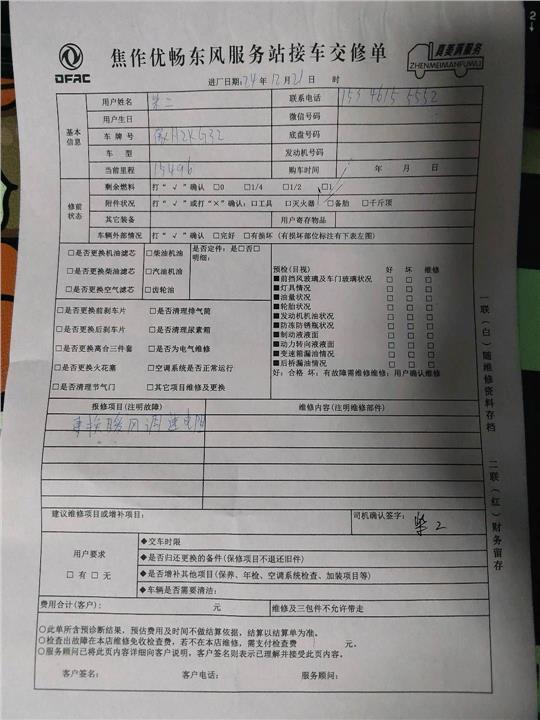 DFAC
焦作优畅东风服务站接车交修单
真美满服务
ZHENMEIMANFUWU
进厂日期:24年12月21日 时
基本信息
用户姓名 柴二 联系电话
用户生日 微信号码
车牌号 底盘号码
车型 发动机号码
当前里程 15496 购车时间 年 月 日
修前状态
剩余燃料 打“√”确认 □0 □1/4 □1/2 □1
附件状况 打“√”或打“×”确认:□工具 □灭火器 □备胎 □千斤顶
其它装备 用户寄存物品
车辆外部情况 打“√”确认 □完好 □有损坏(有损坏部位标注有下表左图)
□是否更换机油滤芯 □柴油机油
□是否更换柴油滤芯 □汽油机油
□是否更换空气滤芯 □齿轮油
是否定件:是□否□
明细:
□是否更换前刹车片 □是否清理排气筒
□是否更换后刹车片 □是否清理尿素箱
□是否更换离合三件套 □是否为电气维修
□是否更换火花塞 □空调系统是否正常运行
□是否清理节气门 □其它项目维修及更换
预检(目视) 好 坏 维修
■前挡风玻璃及车门玻璃状况 □ □ □
■灯具情况 □ □ □
■油量状况 □ □ □
■轮胎状况 □ □ □
■发动机机油状况 □ □ □
■防冻防锈瓶状况 □ □ □
■制动液液面 □ □ □
■动力转向液液面 □ □ □
■变速箱漏油情况 □ □ □
■后桥漏油情况 □ □ □
好:合格 坏:有故障需维修维修:用户确认维修
报修项目(注明故障) 维修内容(注明维修部件)
更换暖风调速电阻
建议维修项目或增补项目: 司机确认签字: 柴2
用户要求
□有□无
◆交车时限
◆是否归还更换的备件(保修项目不退还旧件)
◆是否增补其他项目(保养、年检、空调系统检查、加装项目等)
◆车辆是否需要清洁:
费用合计(客户): 元 维修及三包件不允许带走
○此单所含预诊断结果,预估费用及时间不做结算依据,结算以结算单为准。
○检查出故障在本店维修免收检查费,若不在本店维修,需支付检查费 元。
○服务顾问已将此页内容详细向客户说明,客户签名则表示已理解并接受此页内容。
客户签名: 客户电话: 服务顾问:
一联(白)随维修资料存档
二联(红)财务留存